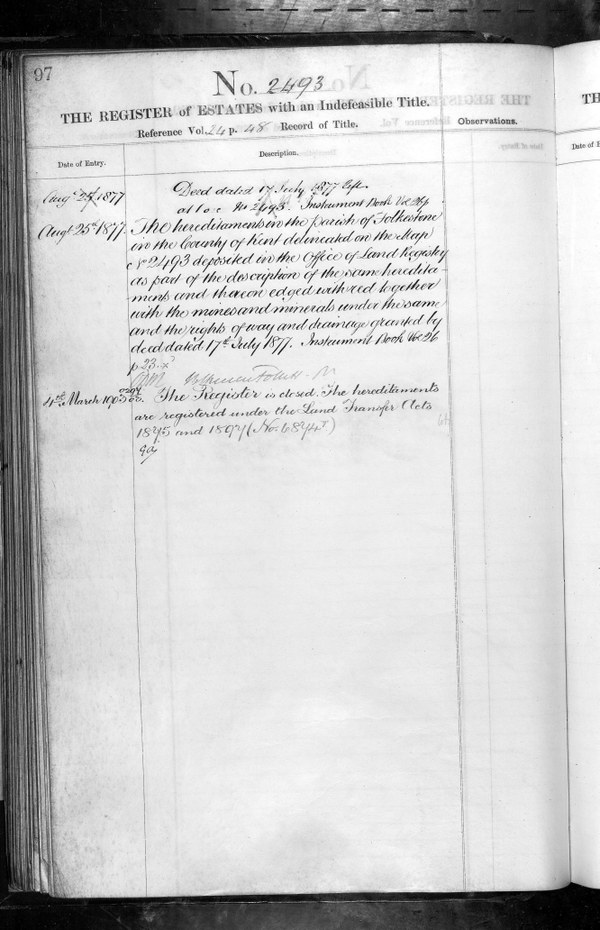 97
No. 2493
THE REGISTER of ESTATES with an Indefeasible Title.
Reference Vol. 24 p. 48 Record of Title.
Observations.
Date of Entry.
Description.
Augt 25th 1877
Deed dated 17 July 1877
No 2493. Instrument Book Vol 26
Augt 25th 1877.
The hereditaments in the parish of Folkestone
in the County of Kent delineated on the Map
No 2493 deposited in the Office of Land Registry
as part of the description of the same heredita-
ments and thereon edged with red together
with the mines and minerals under the same
and the rights of way and drainage granted by
deed dated 17th July 1877. Instrument Book Vol 26
p 23.
4th March 1903
The Register is closed. The hereditaments
are registered under the Land Transfer Acts
1875 and 1897 (No. 6874)